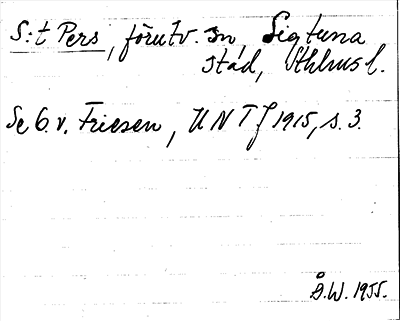 S:t Pers, förutv. sn, Sigtuna
stad, Sthlms l.
Se O. v. Friesen, UNT 1915, s. 3.
Å.W. 1955.